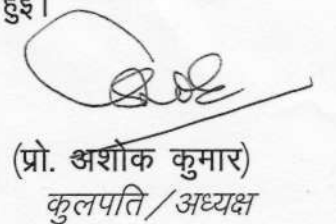 हुई।
(प्रो. अशोक कुमार)
कुलपति / अध्यक्ष